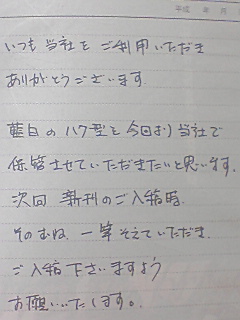 平成　年　月
いつも当社をご利用いただき
ありがとうございます.
藍白のハク型を今回より当社で
保管させていただきたいと思います。
次回 新刊のご入稿時.
そのむね、一筆そえていただき.
ご入稿下さいますよう
お願いいたします。